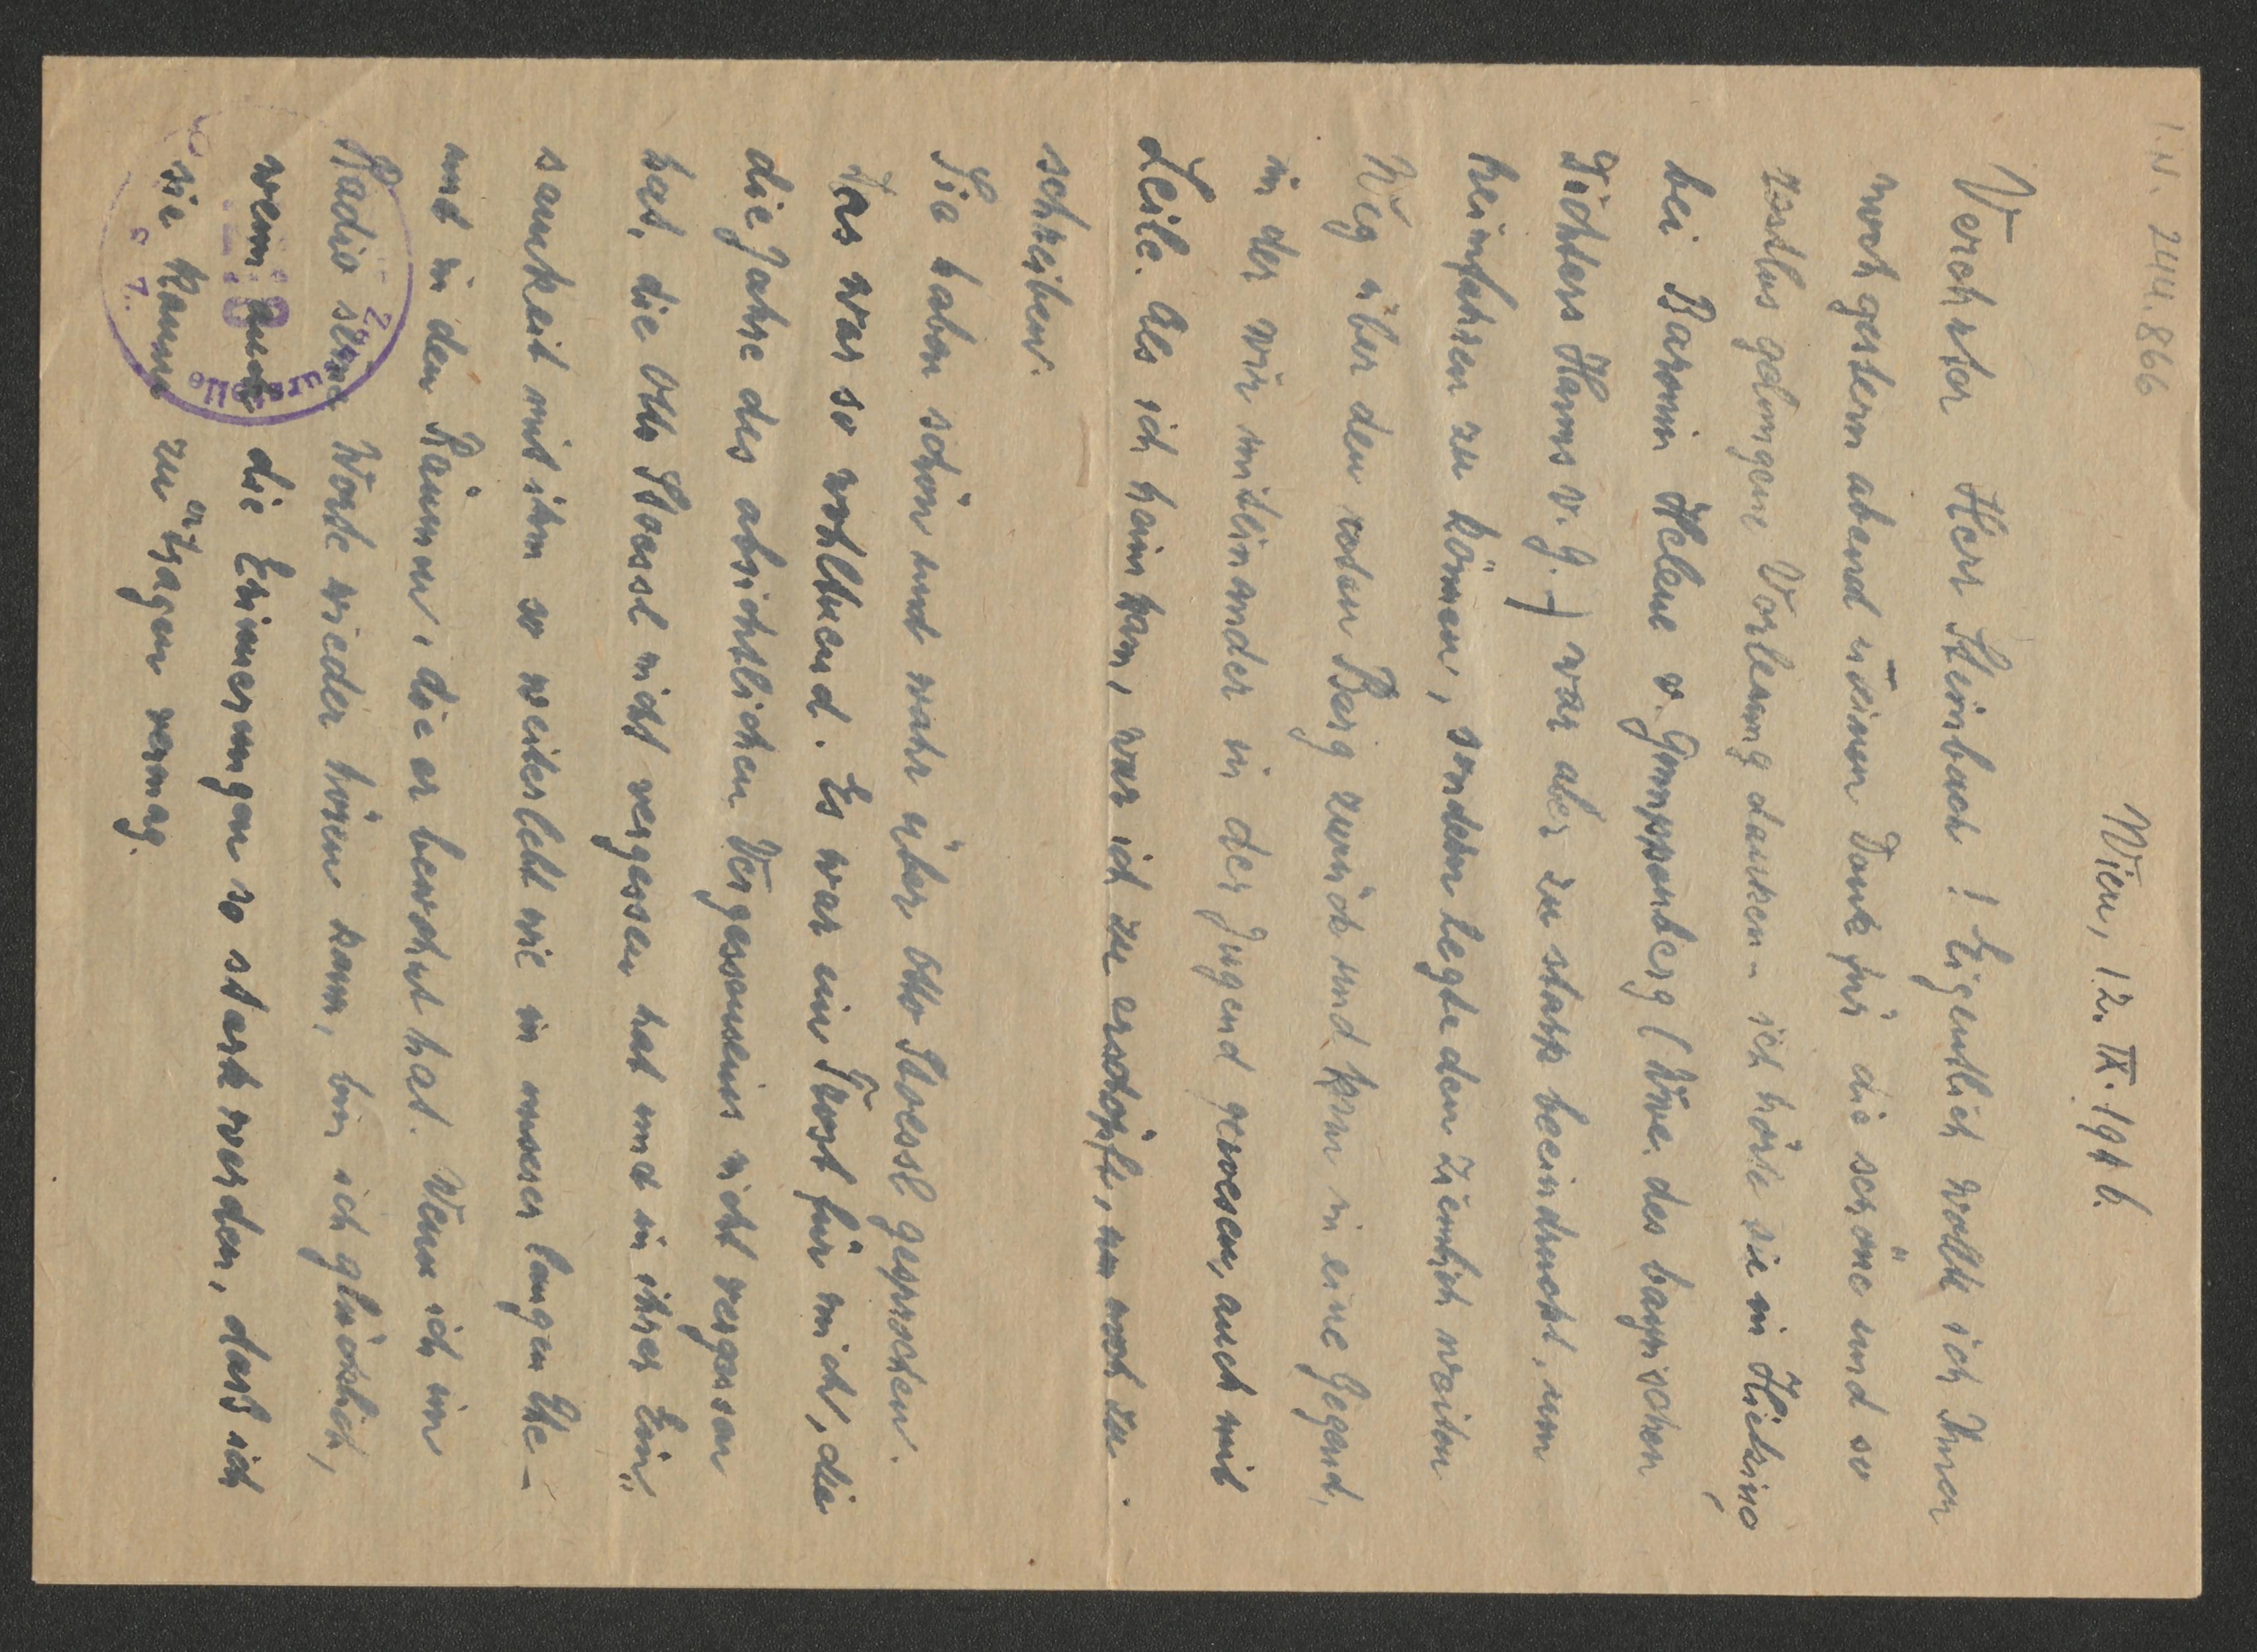 I.N. 244.866
Wien, 12. IX. 1946.
Verehrter Herr Steinbach! Eigentlich wollte ich Ihnen
noch gestern abend meinen Dank für die schöne und so
restlos gelungene Vorlesung danken – ich hörte sie in Hietzing
bei Baronin Helene v. Gumppenberg (Witwe des bayrischen
Dichters Hanns v. G. –) war aber zu stark beeindruckt, um
heimfahren zu können, sondern legte den ziemlich weiten
Weg über den roten Berg zurück und kam in eine Gegend,
in der wir miteinander in der Jugend gewesen, auch mit
Leile. Als ich heim kam, war ich zu erschöpft, um noch zu
schreiben.
Sie haben schön und wahr über Otto Stoessl gesprochen.
Das war so wohltuend. Es war ein Trost für mich, die
die Jahre des absichtlichen Vergessenseins nicht vergessen
hat, die Otto Stoessl nicht vergessen hat und in ihrer Ein„
samkeit mit ihm so weiterlebt wie in unserer langen Ehe –
und in den Räumen, die er bewohnt hat. Wenn ich im
Radio seine Worte wieder hören kann, bin ich glücklich,
wenn auch die Erinnerungen so stark werden, daß ich
sie kaum zu ertragen vermag.
Zensurstelle